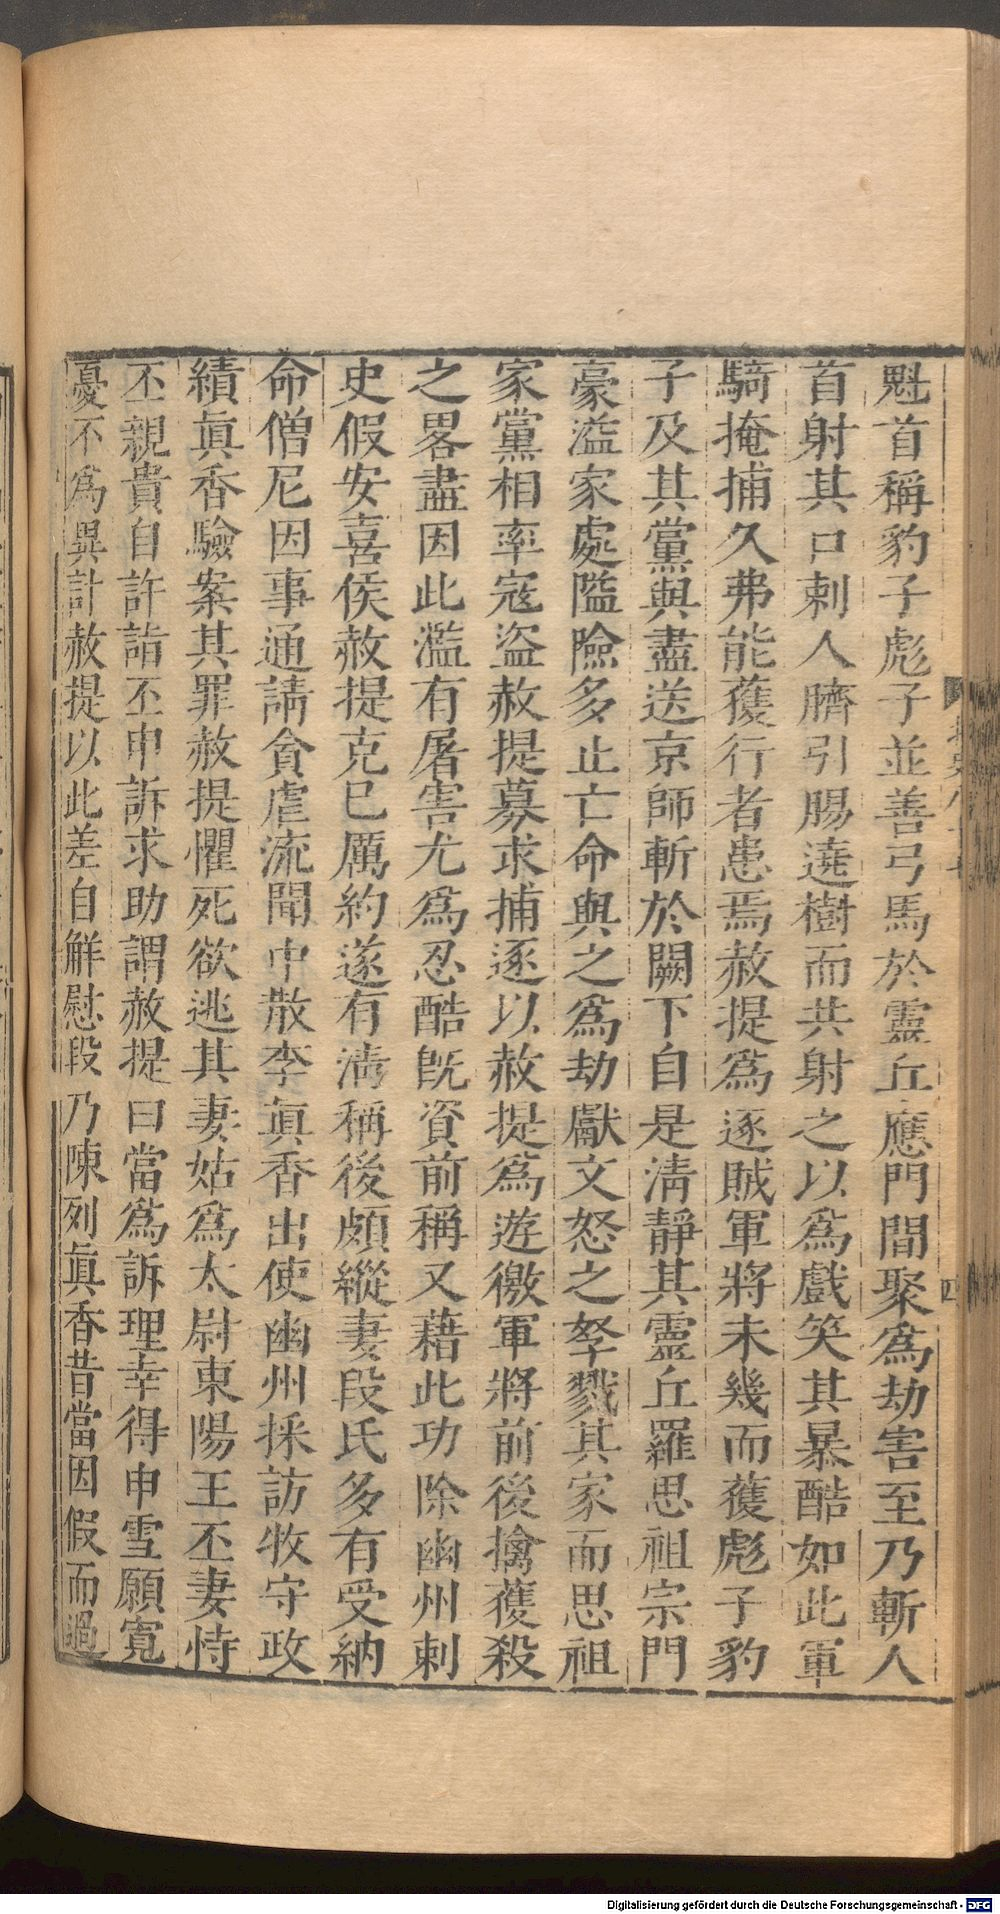 魁首稱豹子彪子並善弓馬於靈丘應門間聚爲劫害至乃斬人
首射其口剌人臍引腸遶樹而共射之以爲戲笑其暴酷如此軍
騎掩捕久弗能獲行者患焉赦提爲逐賊軍將未幾而獲彪子豹
子及其黨與盡送京師斬於闕下自是淸靜其靈丘羅思祖宗門
豪溢家處隘險多止亡命與之爲劫獻文怒之孥戮其家而思祖
家黨相率寇盜赦提募求捕逐以赦提爲遊徼軍將前後擒獲殺
之畧盡因此濫有屠害尤爲忍酷旣資前稱又藉此功除幽州剌
史假安喜侯赦提克巳厲約遂有淸稱後頗縱妻段氏多有受納
命僧尼因事通請貪虐流聞中散李眞香出使幽州採訪牧守政
績眞香驗案其罪赦提懼死欲逃其妻姑爲太尉東陽王丕妻恃
丕親貴自許詣丕申訴求助謂赦提曰當爲訴理幸得申雪願寬
憂不爲異計赦提以此差自解慰段乃陳列眞香昔當因假而過
四
Digitalisierung gefördert durch die Deutsche Forschungsgemeinschaft - DFG